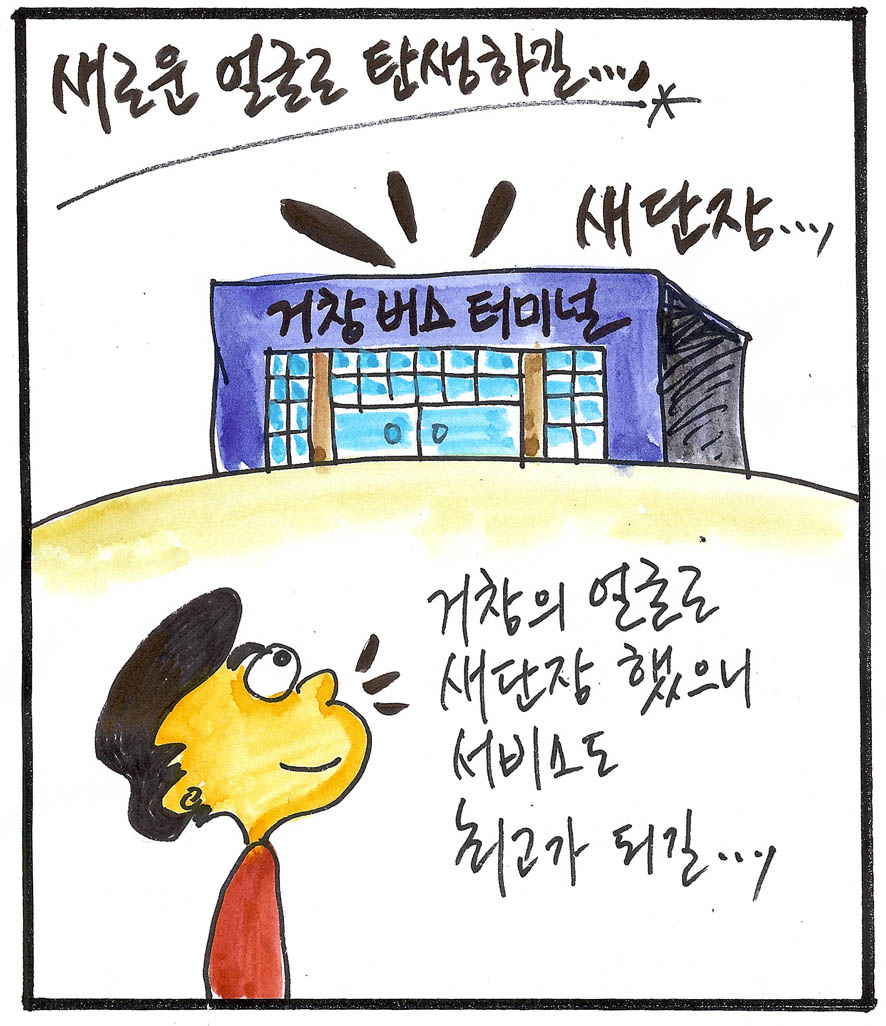 새로운 얼굴로 탄생하길....,
새단장...,
거창 버스 터미널
거창의 얼굴로
새단장 했으니
서비스도
최고가 되길...,